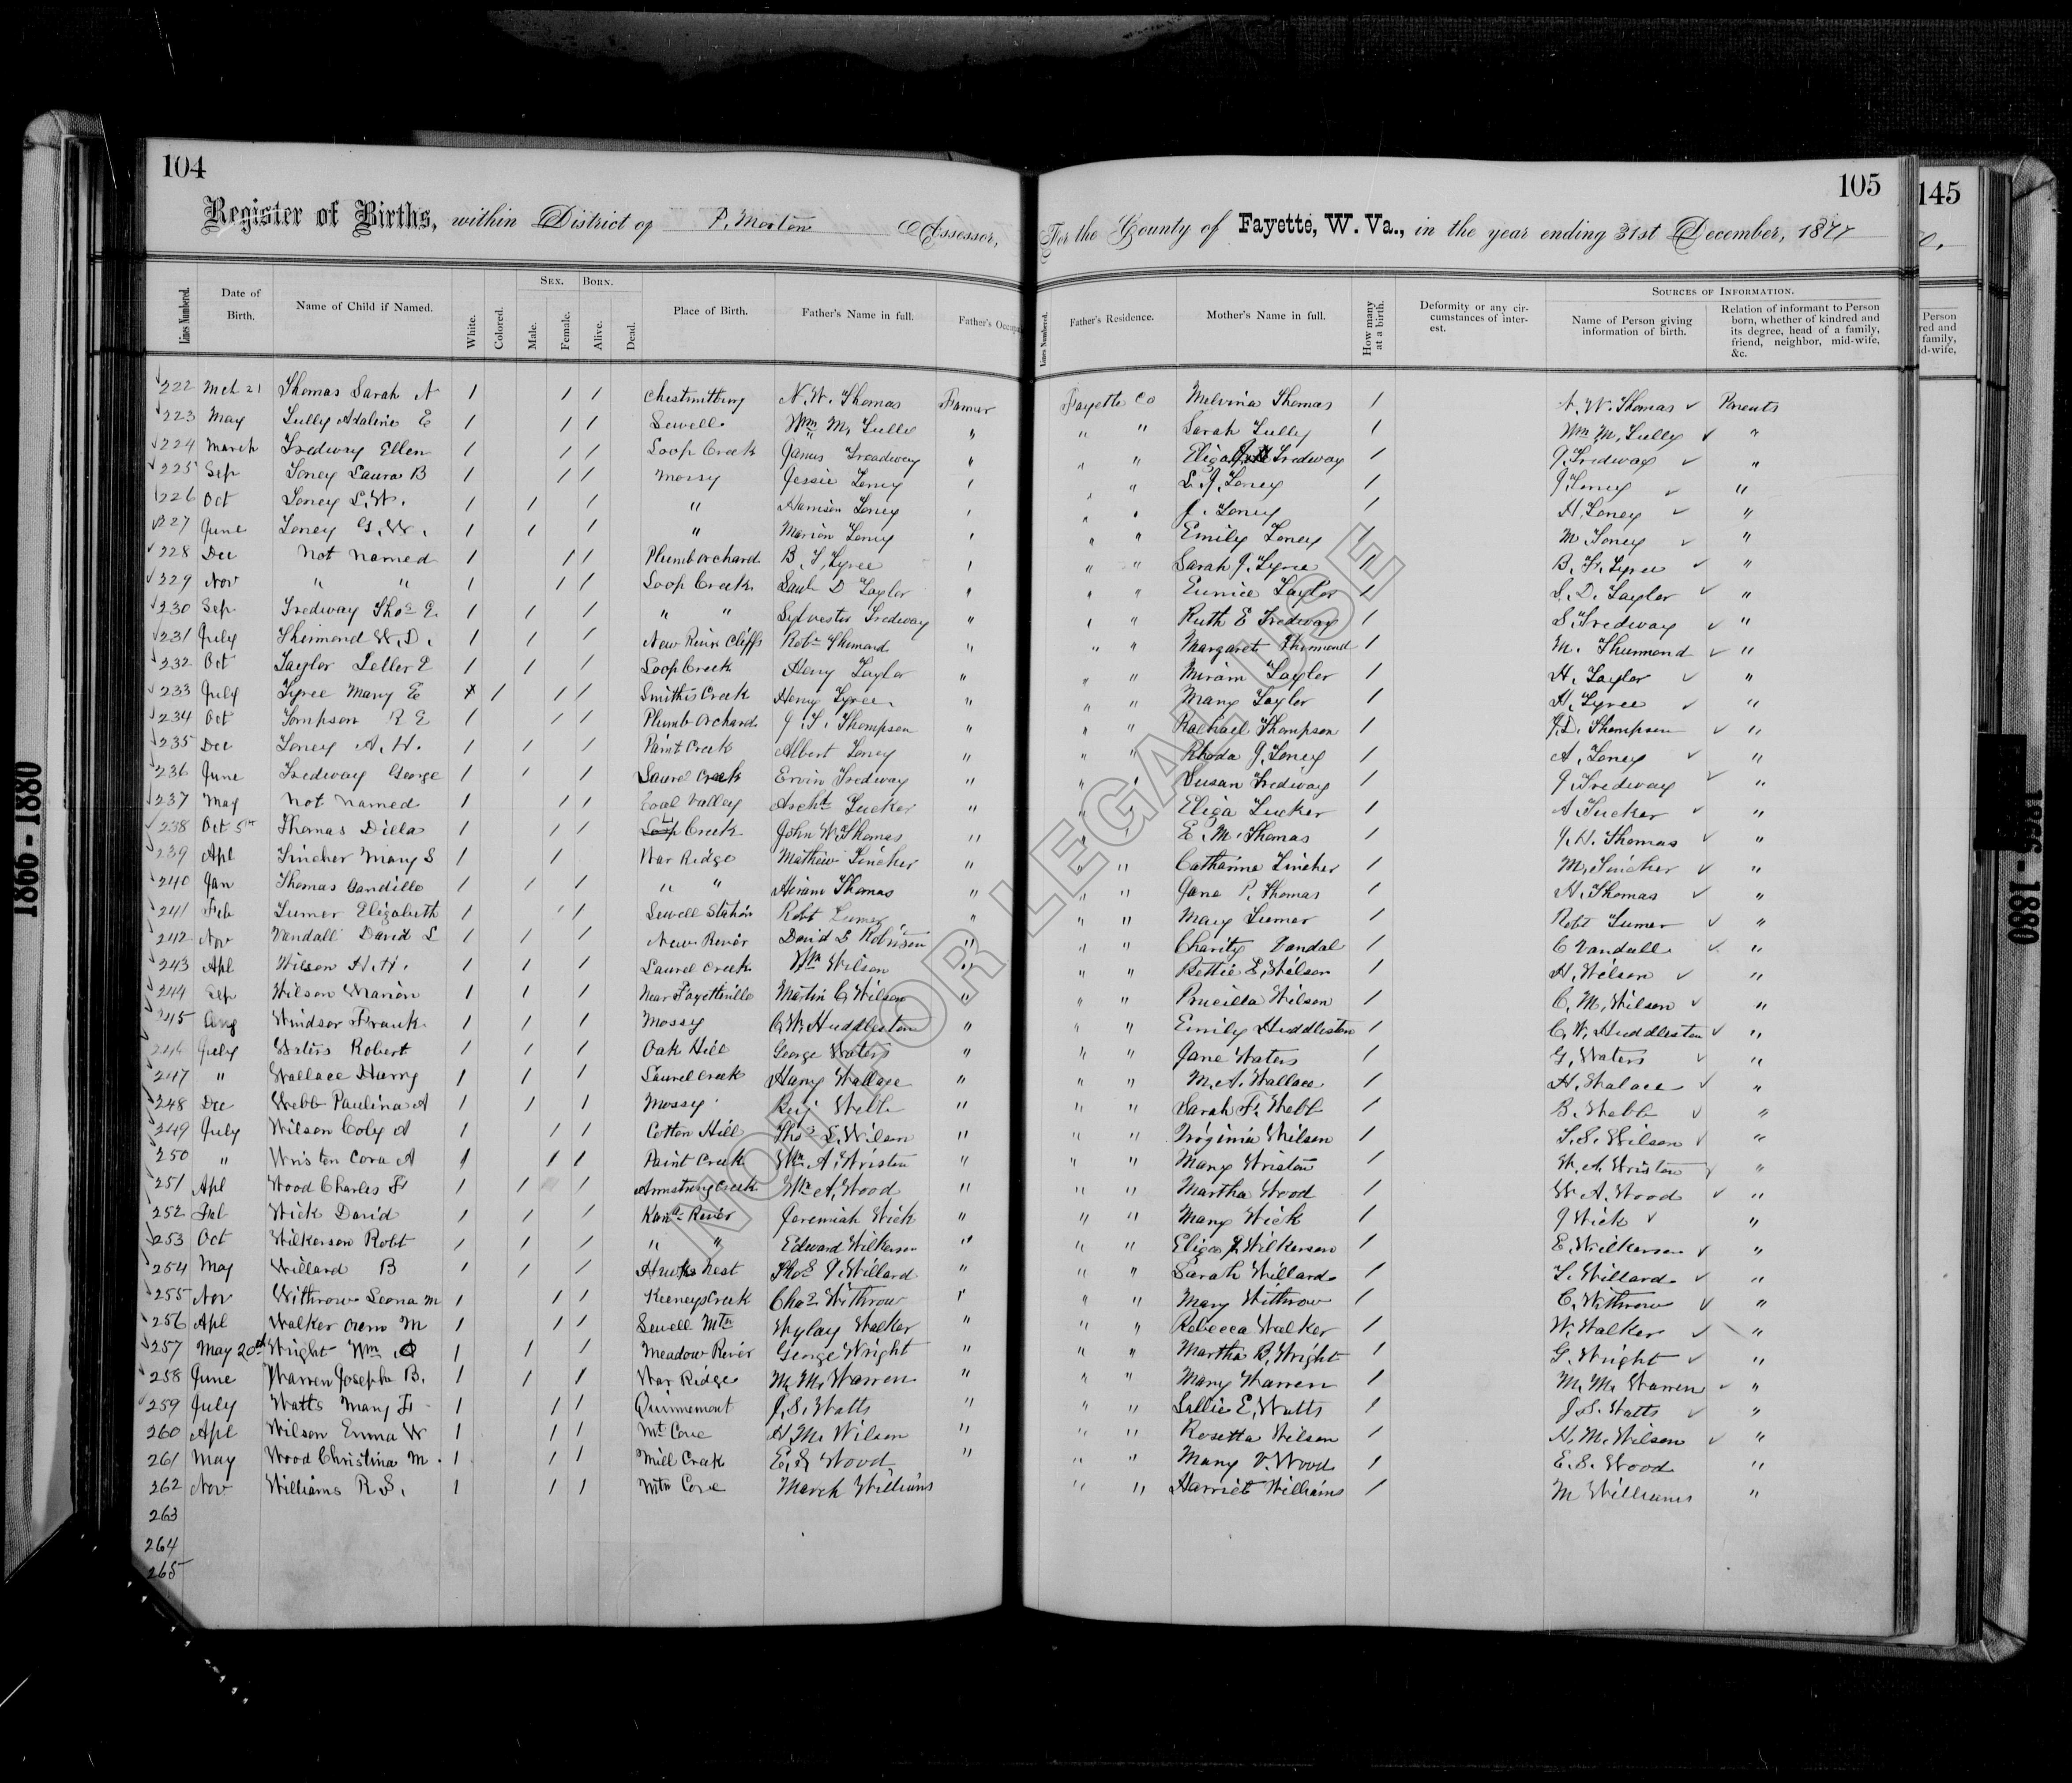 104
105
145
Register of Births, within District of P. Morton Assessor, For the County of Fayette, W. Va., in the year ending 31st December, 1877
Lines Numbered. Date of Birth. Name of Child if Named. White. Colored. Sex. Male. Female. Born. Alive. Dead. Place of Birth. Father's Name in full. Father's Occupa
Lines Numbered. Father's Residence. Mother's Name in full. How many at a birth. Deformity or any circumstances of interest. Sources of Information. Name of Person giving information of birth. Relation of informant to Person born, whether of kindred and its degree, head of a family, friend, neighbor, mid-wife, &c.
222 Mch 21 Thomas Sarah N 1 1 1 N. W. Thomas Farmer Fayette Co Melvina Thomas 1 N. W. Thomas Parents
223 May Lully Adaline E 1 1 1 Sewell Wm M. Lully " " " Sarah Lully 1 Wm M. Lully "
224 March Tredway Ellen 1 1 1 Loop Creek James Treadway " " " Eliza Tredway 1 J Tredway "
225 Sep Toney Laura B 1 1 1 Mossy Jessie Toney " " " L. J. Toney 1 J Toney "
226 Oct Toney L. W. 1 1 1 " Harrison Toney " " " J. Toney 1 H. Toney "
227 June Toney G. W. 1 1 1 " Marion Toney " " " Emily Toney 1 M. Toney "
228 Dec Not Named 1 1 1 Plumb Orchard B. F. Tyree " " " Sarah J. Tyree 1 B. F. Tyree "
229 Nov " " 1 1 1 Loop Creek Saul D Taylor " " " Eunice Taylor 1 S. D. Taylor "
230 Sep Tredway Thos E 1 1 1 " " Sylvester Tredway " " " Ruth E Tredway 1 S Tredway "
231 July Thurmond W. D. 1 1 1 New River Cliffs Robt Thurmond " " " Margaret Thurmond 1 M. Thurmond "
232 Oct Taylor Letler E 1 1 1 Loop Creek Henry Taylor " " " Miriam Taylor 1 H. Taylor "
233 July Tyree Mary E x 1 1 1 Smithis Creek Henry Tyree " " " Mary Taylor 1 H. Tyree "
234 Oct Tompson R E 1 1 1 Plumb Orchard J. T. Thompson " " " Rachael Thompson 1 J. D. Thompson "
235 Dec Toney A. H. 1 1 1 Paint Creek Albert Toney " " " Rhoda J. Toney 1 A. Toney "
236 June Tredway George 1 1 1 Laurel Creek Ervin Tredway " " " Susan Tredway 1 J. Tredway "
237 May Not Named 1 1 1 Coal Valley Archd Tucker " " " Eliza Tucker 1 A. Tucker "
238 Oct 5th Thomas Dilla 1 1 1 Creek John W. Thomas " " " E. M. Thomas 1 J. H. Thomas "
239 Apl Tincher Mary S 1 1 War Ridge Mathew Tincher " " " Catharine Tincher 1 M. Tincher "
240 Jan Thomas Candillo 1 1 1 " " Hiram Thomas " " " Jane P. Thomas 1 H. Thomas "
241 Feb Turner Elizabeth 1 1 1 Sewell Station Robt Turner " " " Mary Turner 1 Robt Turner "
242 Nov Vandall David L 1 1 1 New River David S Robinson " " " Charity Vandal 1 C Vandall "
243 Apl Wilson H. H. 1 1 1 Laurel Creek Wm Wilson " " " Bettie E. Wilson 1 H. Wilson "
244 Sep Wilson Marion 1 1 1 Near Fayetteville Martin C. Wilson " " " Prucilla Wilson 1 C. M. Wilson "
245 Aug Windsor Frank 1 1 1 Mossy C. W. Huddleston " " " Emily Huddleston 1 C. W. Huddleston "
246 July Waters Robert 1 1 1 Oak Hill George Waters " " " Jane Waters 1 G. Waters "
247 " Wallace Harry 1 1 1 Laurel Creek Harry Wallace " " " M. A. Wallace 1 H. Walace "
248 Dec Webb Paulina A 1 1 1 Mossy Benj Webb " " " Sarah F. Webb 1 B. Webb "
249 July Wilson Coly A 1 1 1 Cotton Hill Thos S. Wilson " " " Virginia Wilson 1 T. S. Wilson "
250 " Wriston Cora A 1 1 1 Paint Creek Wm A. Wriston " " " Mary Wriston 1 W. A. Wriston "
251 Apl Wood Charles F. 1 1 1 Armstrong Creek Wm A. Wood " " " Martha Wood 1 W. A. Wood "
252 Feb Wick David 1 1 1 Kana River Jeremiah Wick " " " Mary Wick 1 J Wick "
253 Oct Wilkerson Robt 1 1 1 " " Edward Wilkerson " " " Eliza J. Wilkerson 1 E. Wilkerson "
254 May Willard B 1 1 1 Hawks Nest Thos J. Willard " " " Sarah Willard 1 T. Willard "
255 Nov Withrow Leona M 1 1 1 Keeneys Creek Chas Withrow " " " Mary Withrow 1 C. Withrow "
256 Apl Walker M 1 1 1 Sewell Mtn Wylay Walker " " " Rebecca Walker 1 W. Walker "
257 May 20th Wright Wm 1 1 1 Meadow River George Wright " " " Martha B. Wright 1 G. Wright "
258 June Warren Joseph B. 1 1 1 War Ridge M. M. Warren " " " Mary Warren 1 M. M. Warren "
259 July Watts Mary F 1 1 1 Quinnemont J. S. Watts " " " Sallie E. Watts 1 J. S. Watts "
260 Apl Wilson Emma W 1 1 1 Mt Cove H. M. Wilson " " " Rosetta Wilson 1 H. M. Wilson "
261 May Wood Christina M. 1 1 1 Mill Creek E. S. Wood " " " Mary V. Wood 1 E. S. Wood "
262 Nov Williams R. S. 1 1 1 Mtn Cove March Williams " " Harriet Williams 1 M Williams "
263
264
265
1866 - 1880
NOT FOR LEGAL USE